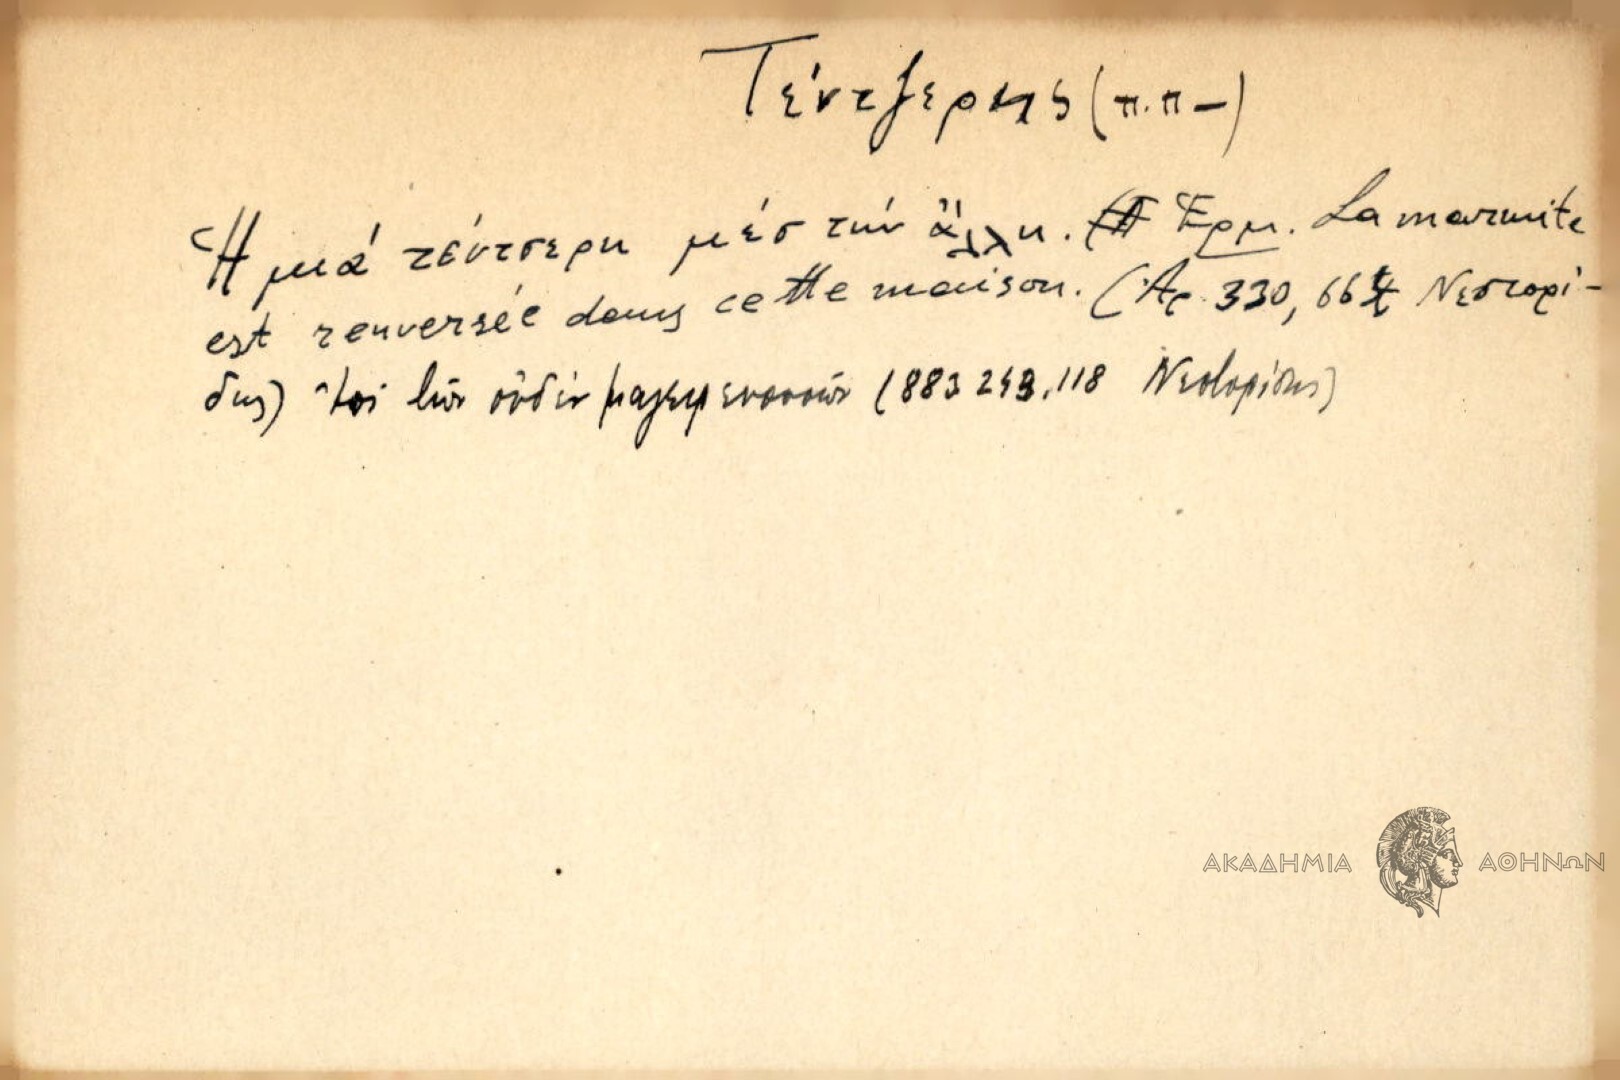 Τέντζερης (π.π—)
Ἡ μιά τέντσερη μέσ τήν ἄλλη. Ἑρμ. La marmite
est renversée dans cette maison. (Ἀρ. 330, 66 Νεστορί-
δης) ἐπί τῶν οὐδέν μαγειρευουσῶν (883 249.118 Νεστορίδης)
ΑΚΑΔΗΜΙΑ ΑΘΗΝΩΝ